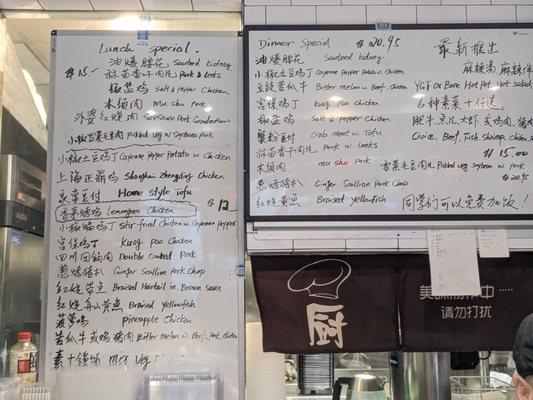 Lunch Special.
$15-
油爆腰花 Sauteed kidney
蒜苗香干肉片 Pork & Leeks
椒盐鸡 Salt & Pepper Chicken
木须肉 mu shu Pork
外婆红烧肉 Soysauce Pork Grandmother's
小椒雪菜毛豆肉 Pickled Veg w Soybean Pork
小椒土豆鸡丁 Cayenne Pepper Potato w Chicken
上海正宗鸡 Shanghai Zhengzong Chicken
家常豆付 Home style Tofu
香茅烤鸡 Lemongrass Chicken
$12
小椒煸鸡丁 Stir fried Chicken w Cayenne Pepper
宫保鸡丁 Kung Pao Chicken
四川回锅肉 Double Cooked Pork
葱烤猪扒 Ginger Scallion Pork Chop
红烧带鱼 Braised Hairtail in Brown sauce
红烧舟山黄鱼 Braised Yellowfish
菠萝鸡 pineapple Chicken
苦瓜牛或鸡猪肉 Bitter melon w Beef, Pork, Chicken
素十锦 mix Veg
Dinner Special $20.95
油爆腰花 Sauteed kidney
小椒土豆鸡丁 Cayenne Pepper Potato w chicken
豆豉苦瓜牛 Bitter melon w Beef, chicken
宫保鸡丁 kung Pao Chicken
椒盐鸡 Salt & Pepper Chicken
蟹粉豆付 Crab meat w Tofu
蒜苗香干肉片 Pork w. Leeks
木须肉 mu shu Pork
葱烤猪扒 Ginger Scallion Pork Chop
红烧黄鱼 Braised Yellowfish
最新推出
麻辣烫 麻辣拌
YGFox Bone Hot Pot, Hot Salad
6种素菜+任选
肥牛.鱼片.大虾.或鸡肉.猪肉
Choice, Beef, Fish, Shrimp, Chicken
$15.00
雪菜毛豆肉片 Pickled Veg Soybean w. Pork
$20.95
同学们可以免费加饭!
厨
美味制作中······
请勿打扰